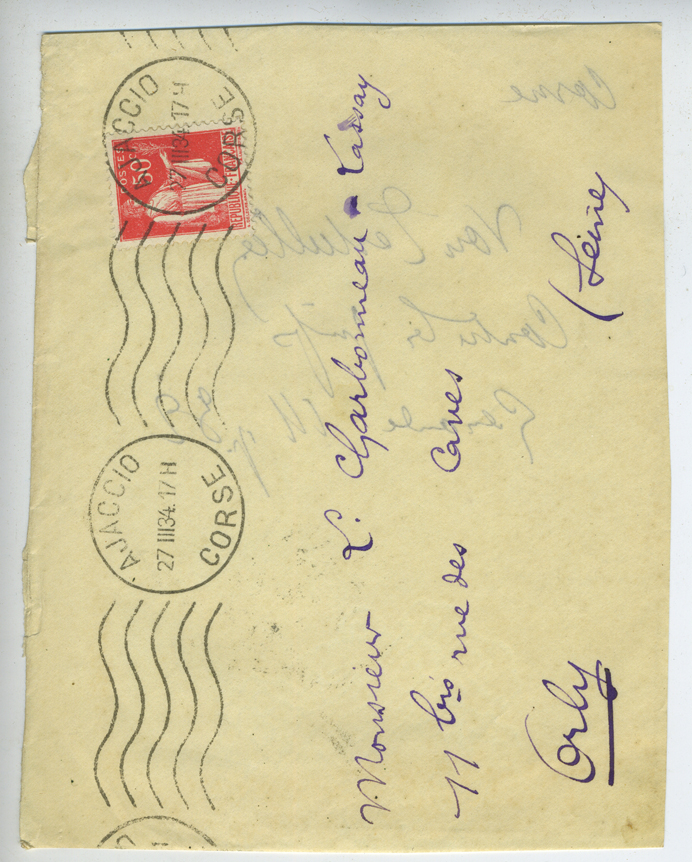 AJACCIO
27 III 34.17 H
CORSE
AJACCIO
27 III 34.17 H
CORSE
POSTES
50
REPUBLIQUE FRANÇAISE
Monsieur L. Charbonneau - Lassay
11 bis rue des Caves
Orly (Seine)
Corse